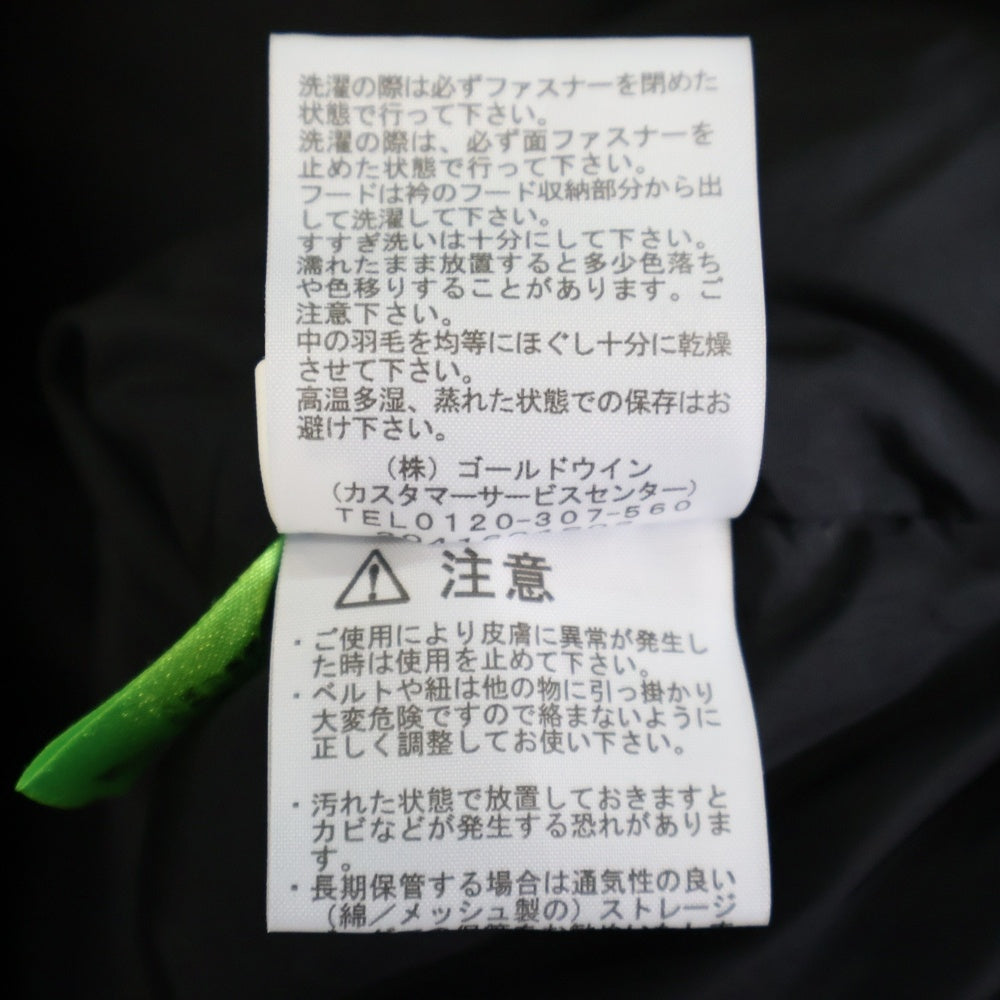 洗濯の際は必ずファスナーを閉めた
状態で行って下さい。
洗濯の際は、必ず面ファスナーを
止めた状態で行って下さい。
フードは衿のフード収納部分から出
して洗濯して下さい。
すすぎ洗いは十分にして下さい。
濡れたまま放置すると多少色落ち
や色移りすることがあります。ご
注意下さい。
中の羽毛を均等にほぐし十分に乾燥
させて下さい。
高温多湿、蒸れた状態での保存はお
避け下さい。
(株)ゴールドウイン
(カスタマーサービスセンター)
TEL0120-307-560
注意
・ご使用により皮膚に異常が発生し
た時は使用を止めて下さい。
・ベルトや紐は他の物に引っ掛かり
大変危険ですので絡まないように
正しく調整してお使い下さい。
・汚れた状態で放置しておきますと
カビなどが発生する恐れがありま
す。
・長期保管する場合は通気性の良い
(綿/メッシュ製の)ストレージ